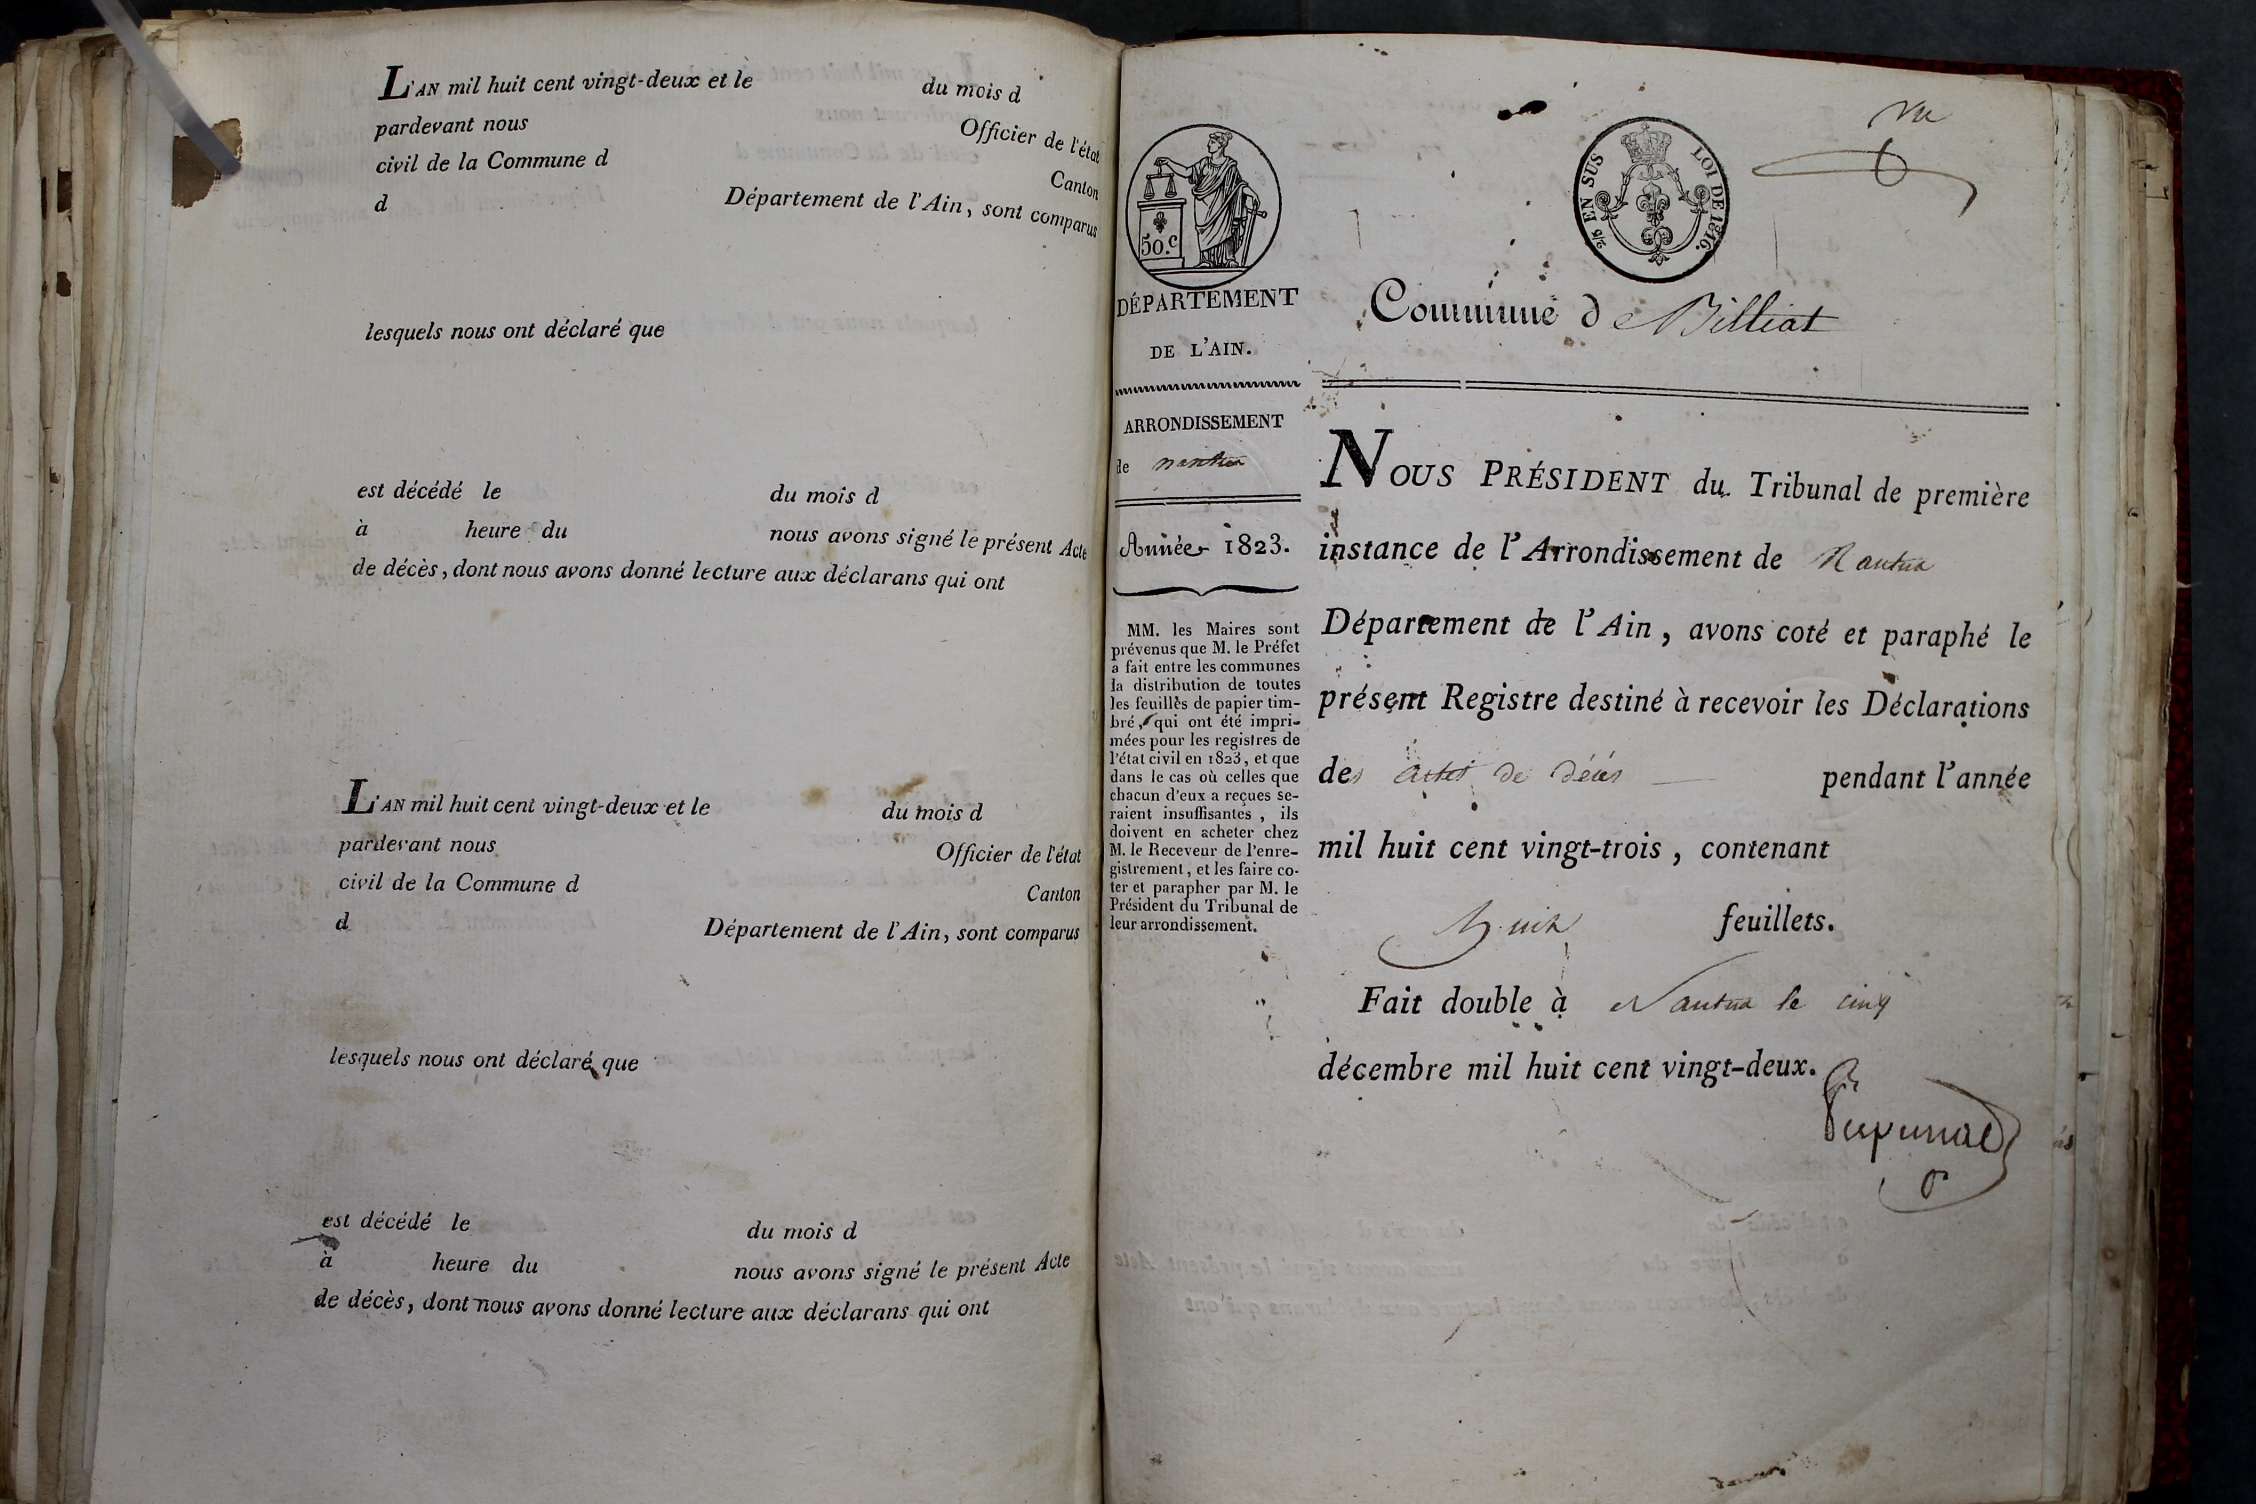 L'AN mil huit cent vingt-deux et le du mois d
pardevant nous Officier de l'état
civil de la Commune d Canton
d Département de l'Ain, sont comparus
lesquels nous ont déclaré que
est décédé le du mois d
à heure du nous avons signé le présent Acte
de décès, dont nous avons donné lecture aux déclarans qui ont
L'AN mil huit cent vingt-deux et le du mois d
pardevant nous Officier de l'état
civil de la Commune d Canton
d Département de l'Ain, sont comparus
lesquels nous ont déclaré que
est décédé le du mois d
à heure du nous avons signé le présent Acte
de décès, dont nous avons donné lecture aux déclarans qui ont
50.c
DÉPARTEMENT
DE L'AIN.
ARRONDISSEMENT
de nantua
Année 1823.
MM. les Maires sont
prévenus que M. le Préfet
a fait entre les communes
la distribution de toutes
les feuilles de papier tim-
bré, qui ont été impri-
mées pour les registres de
l'état civil en 1823, et que
dans le cas où celles que
chacun d'eux a reçues se-
raient insuffisantes, ils
doivent en acheter chez
M. le Receveur de l'enre-
gistrement, et les faire co-
ter et parapher par M. le
Président du Tribunal de
leur arrondissement.
EN SUS LOI DE 1816.
Commune de Billiat
NOUS PRÉSIDENT du Tribunal de première
instance de l'Arrondissement de Nantua
Département de l'Ain, avons coté et paraphé le
présent Registre destiné à recevoir les Déclarations
des actes de décès pendant l'année
mil huit cent vingt-trois, contenant
huit feuillets.
Fait double à Nantua le cinq
décembre mil huit cent vingt-deux.